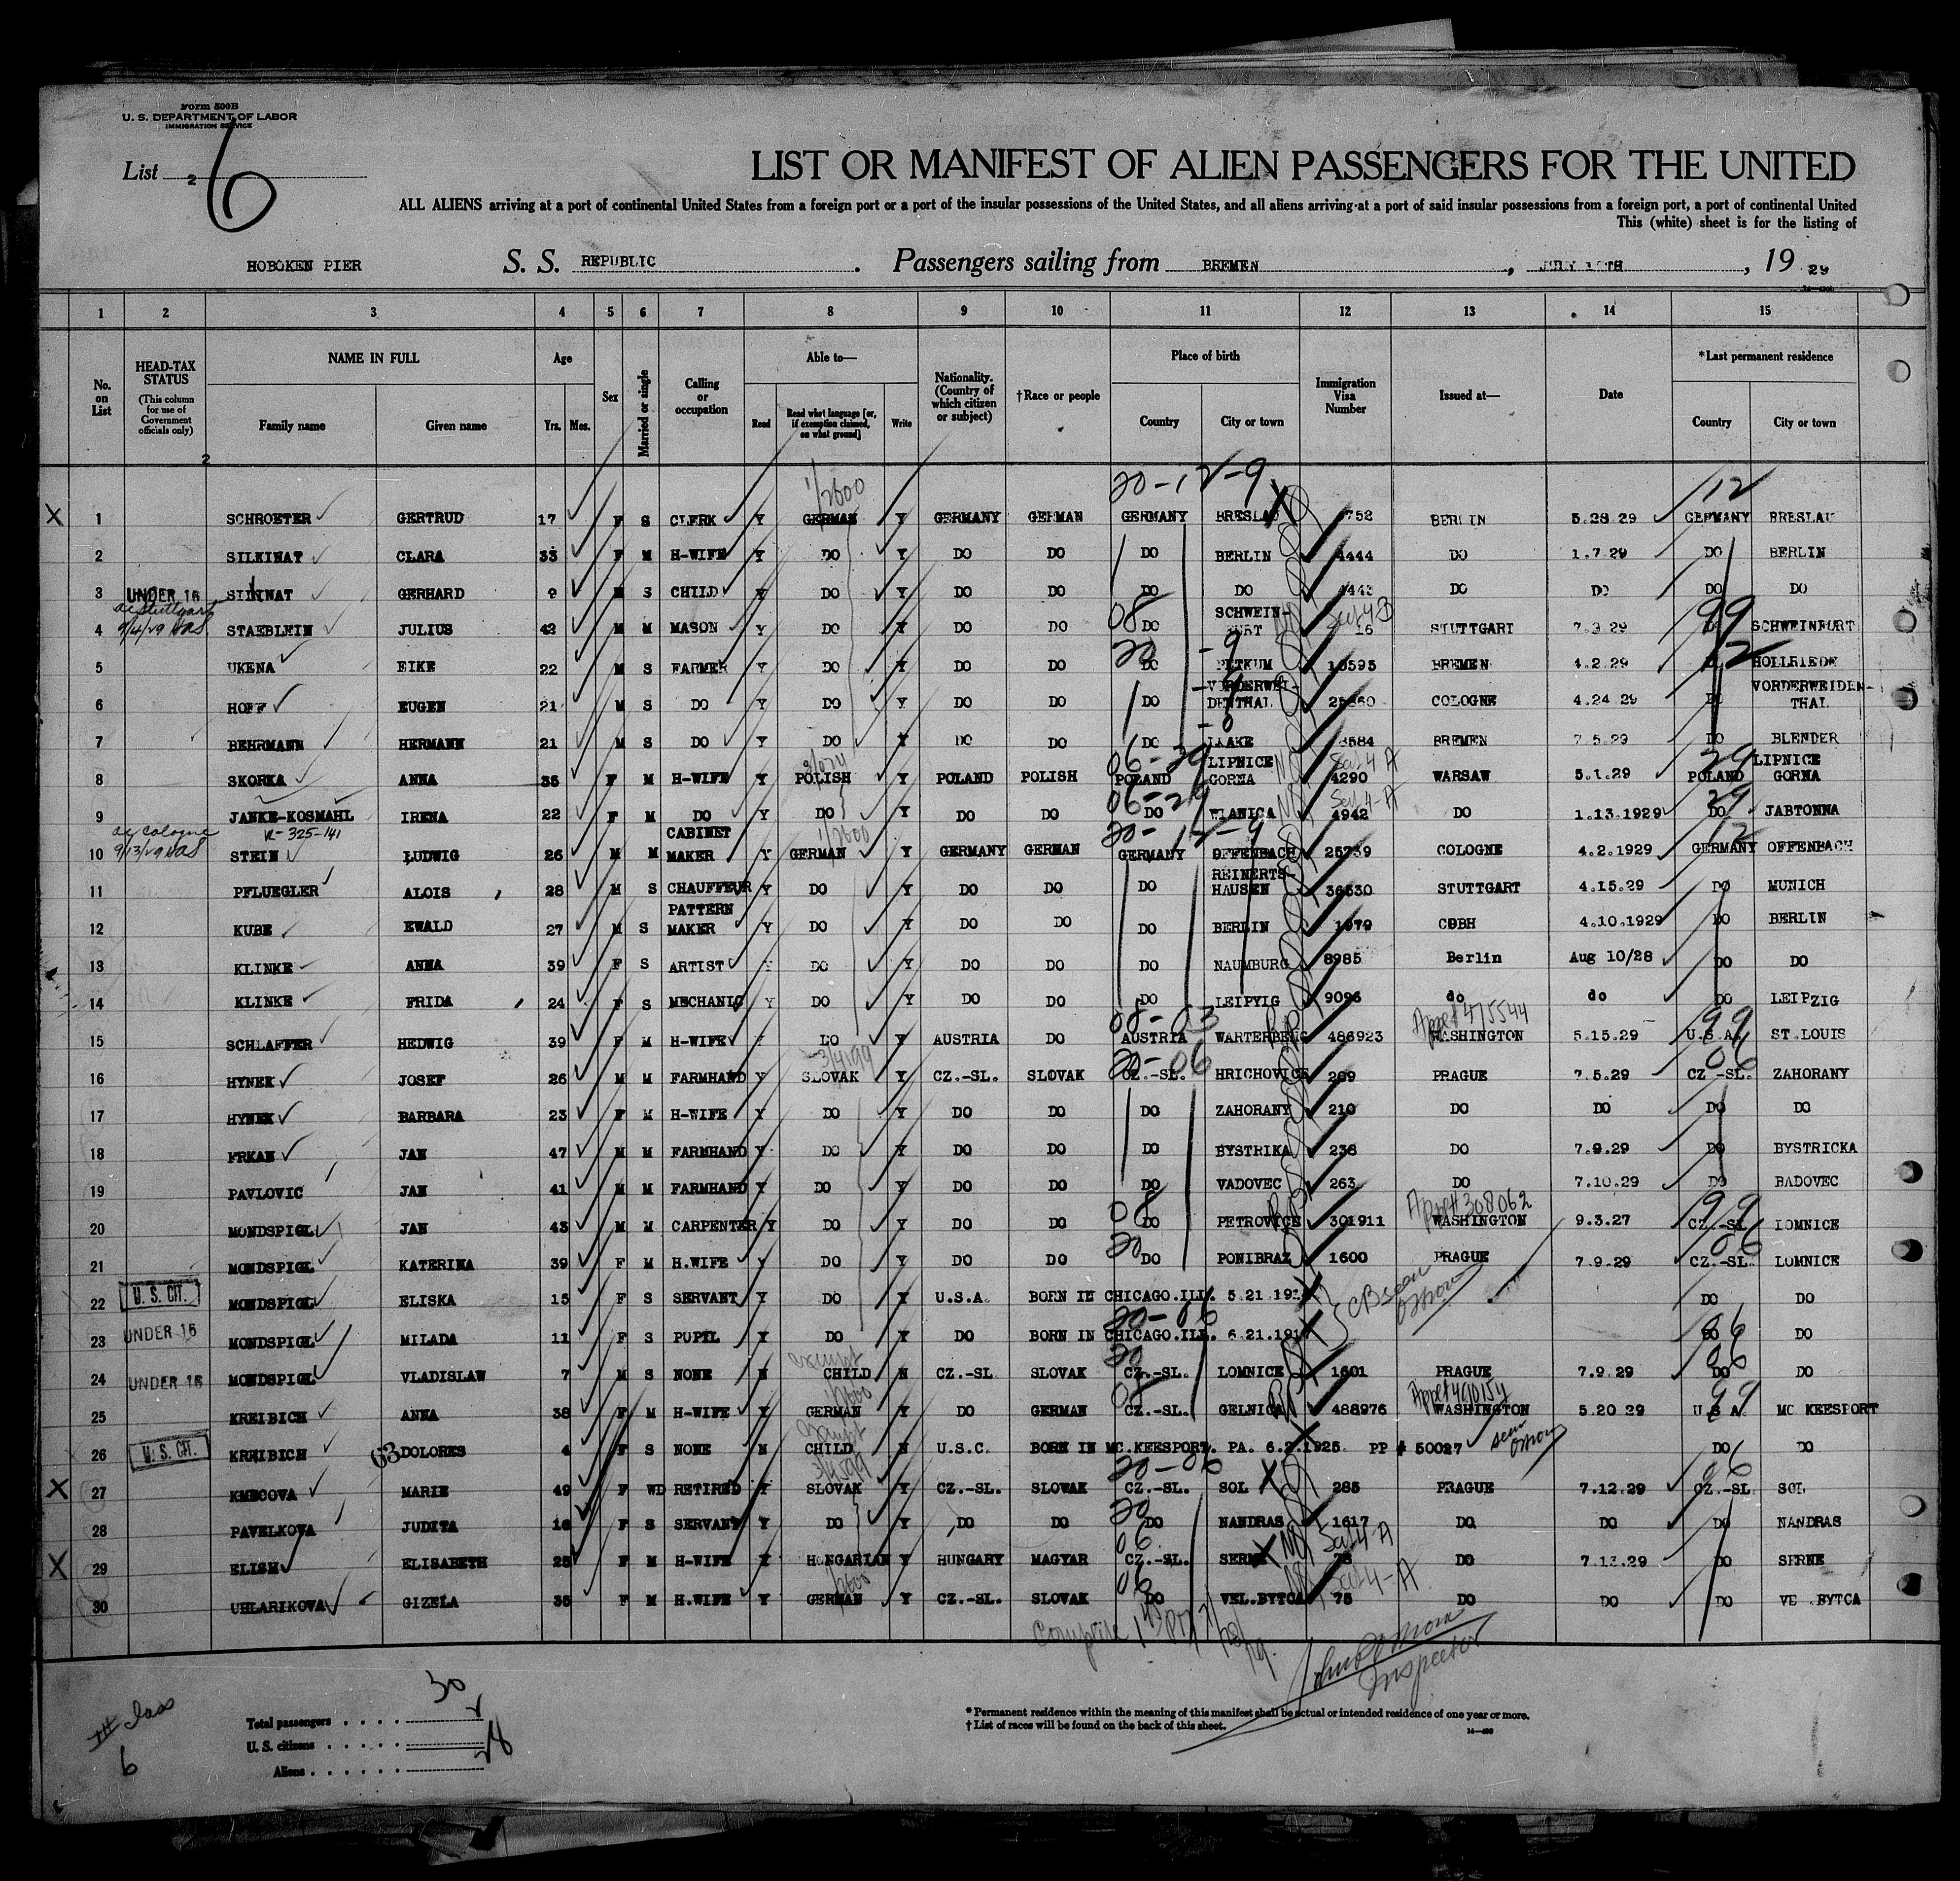 Form 500B
U. S. DEPARTMENT OF LABOR
IMMIGRATION SERVICE
List 2 6
LIST OR MANIFEST OF ALIEN PASSENGERS FOR THE UNITED
ALL ALIENS arriving at a port of continental United States from a foreign port or a port of the insular possessions of the United States, and all aliens arriving at a port of said insular possessions from a foreign port, a port of continental United
This (white) sheet is for the listing of
HOBOKEN PIER S. S. REPUBLIC . Passengers sailing from BREMEN , JULY TH , 19 29
1 2 3 4 5 6 7 8 9 10 11 12 13 14 15
No. on List
HEAD-TAX STATUS (This column for use of Government officials only)
NAME IN FULL Family name Given name
Age Yrs. Mos.
Sex
Married or single
Calling or occupation
Able to— Read Read what language [or, if exemption claimed, on what ground] Write
Nationality. (Country of which citizen or subject)
†Race or people
Place of birth Country City or town
Immigration Visa Number
Issued at—
Date
*Last permanent residence Country City or town
2
20-12-9 12
1/2600
X 1 SCHROETER GERTRUD 17 F S CLERK Y GERMAN Y GERMANY GERMAN GERMANY BRESLAU X 752 BERLIN 5.28.29 GERMANY BRESLAU
2 SILKINAT CLARA 33 F M H-WIFE Y DO Y DO DO DO BERLIN 4444 DO 1.7.29 DO BERLIN
3 UNDER 16 SILKINAT GERHARD M S CHILD Y DO Y DO DO DO DO 4443 DO DO DO DO
4 9/4/29 STAEBLEIN JULIUS 42 M M MASON Y DO Y DO DO 08 DO SCHWEINFURT 16 Sec 4 B STUTTGART 7.3.29 99 DO SCHWEINFURT
5 UKENA EIKE 22 M S FARMER Y DO Y DO DO 20 DO -9 PETKUM 10595 BREMEN 4.2.29 12 HOLLRIEDE
6 HOFF EUGEN 21 M S DO Y DO Y DO DO DO VORDERWEI-DENTHAL COLOGNE 4.24.29 DO VORDERWEIDEN-THAL
7 BEHRMANN HERMANN 21 M S DO Y DO Y DO DO DO 8584 BREMEN 7.5.29 DO BLENDER
8 SKORKA ANNA 35 F M H-WIFE Y POLISH Y POLAND POLISH 06-29 POLAND LIPNICE GORNA 4290 Sec 4 A WARSAW 5.1.29 29 POLAND LIPNICE GORNA
9 JANKE-KOSMAHL IRENA 22 F M DO Y DO Y DO DO 06-29 DO WIANICA 4942 Sec 4-A DO 1.13.1929 29 DO JABTONNA
R-325-141
10 Cologne 9/13/29 STEIN LUDWIG 26 M M CABINET MAKER Y 1/2600 GERMAN Y GERMANY GERMAN 20-12-9 GERMANY OFFENBACH 25739 COLOGNE 4.2.1929 12 GERMANY OFFENBACH
11 PFLUEGLER ALOIS 28 M S CHAUFFEUR Y DO Y DO DO DO REINERTSHAUSEN 36530 STUTTGART 4.15.29 DO MUNICH
12 KUBE EWALD 27 M S PATTERN MAKER Y DO Y DO DO DO BERLIN 1979 4.10.1929 DO BERLIN
13 KLINKE ANNA 39 F S ARTIST Y DO Y DO DO DO NAUMBURG 8985 Berlin Aug 10/28 DO DO
14 KLINKE FRIDA 24 F S MECHANIC Y DO Y DO DO DO LEIPYIG 9096 do do DO LEIPZIG
15 SCHLAFFER HEDWIG 39 F M H-WIFE DO Y AUSTRIA DO 08-03 AUSTRIA WARTERBERG 486923 #475544 WASHINGTON 5.15.29 99 U.S.A. ST.LOUIS
16 HYNEK JOSEF 26 M M FARMHAND Y SLOVAK Y CZ.-SL. SLOVAK 20-06 CZ.-SL. HRICHOVICE 209 PRAGUE 7.5.29 06 CZ-SL. ZAHORANY
17 HYNEK BARBARA 23 F M H-WIFE Y DO Y DO DO DO ZAHORANY 210 DO DO DO DO
18 FRKAN JAN 47 M M FARMHAND Y DO Y DO DO DO BYSTRIKA 238 DO 7.9.29 DO BYSTRICKA
19 PAVLOVIC JAN 41 M M FARMHAND Y DO Y DO DO DO VADOVEC 263 DO 7.10.29 DO BADOVEC
20 MONDSPIGL JAN 43 M M CARPENTER Y DO Y DO DO 08 DO PETROVICE 301911 #308062 WASHINGTON 9.3.27 99 CZ.-SL. LOMNICE
21 MONDSPIGL KATERINA 39 F M H.WIFE Y DO Y DO DO 20 DO PONIBRAZ 1600 PRAGUE 7.9.29 06 CZ.-SL. LOMNICE
22 U. S. CIT. MONDSPIGL ELISKA 15 F S SERVANT Y DO Y U.S.A. BORN IN CHICAGO.ILL. 5.21 DO DO
23 UNDER 16 MONDSPIGL MILADA 11 F S PUPIL Y DO Y DO BORN IN CHICAGO.ILL. 6.21 DO DO
24 UNDER 16 MONDSPIGL VLADISLAW 7 M S NONE N exempt CHILD N CZ.-SL SLOVAK CZ.-SL. LOMNICE 1601 PRAGUE 7.9.29 06 DO DO
25 KREIBICH ANNA 38 F M H-WIFE Y GERMAN Y DO GERMAN CZ.-SL. GELNICA 488976 #490154 WASHINGTON 5.20 29 99 U.S.A. MC KEESPORT
26 U. S. CIT. KREIBICH 63 DOLORES 4 F S NONE N exempt CHILD N U.S.C. BORN IN MC.KEESPORT. PA. 6.2.1925. PP # 50027 seen DO DO
X 27 KMECOVA MARIE 49 F WD RETIRED Y SLOVAK Y CZ.-SL. SLOVAK 20-06 CZ.-SL. SOL X 285 PRAGUE 7.12.29 06 CZ.-SL SOL
28 PAVELKOVA JUDITA F S SERVANT Y DO Y DO DO 20 DO NANDRAS 1617 DO DO DO NANDRAS
X 29 ELISH ELISABETH F M H-WIFE Y HUNGARIAN Y HUNGARY MAGYAR 06 CZ.-SL. SERNE X 78 Sec 4 A DO 7.13.29 DO SERNE
30 UHLARIKOVA GIZELA 35 F M H.WIFE Y GERMAN Y CZ.-SL. SLOVAK 06 DO VEL.BYTCA 75 Sec 4-A DO DO DO VE .BYTCA
Inspector
Total passengers . . . . 30
U. S. citizens . . . . .
Aliens . . . . . .
6
* Permanent residence within the meaning of this manifest shall be actual or intended residence of one year or more.
† List of races will be found on the back of this sheet.